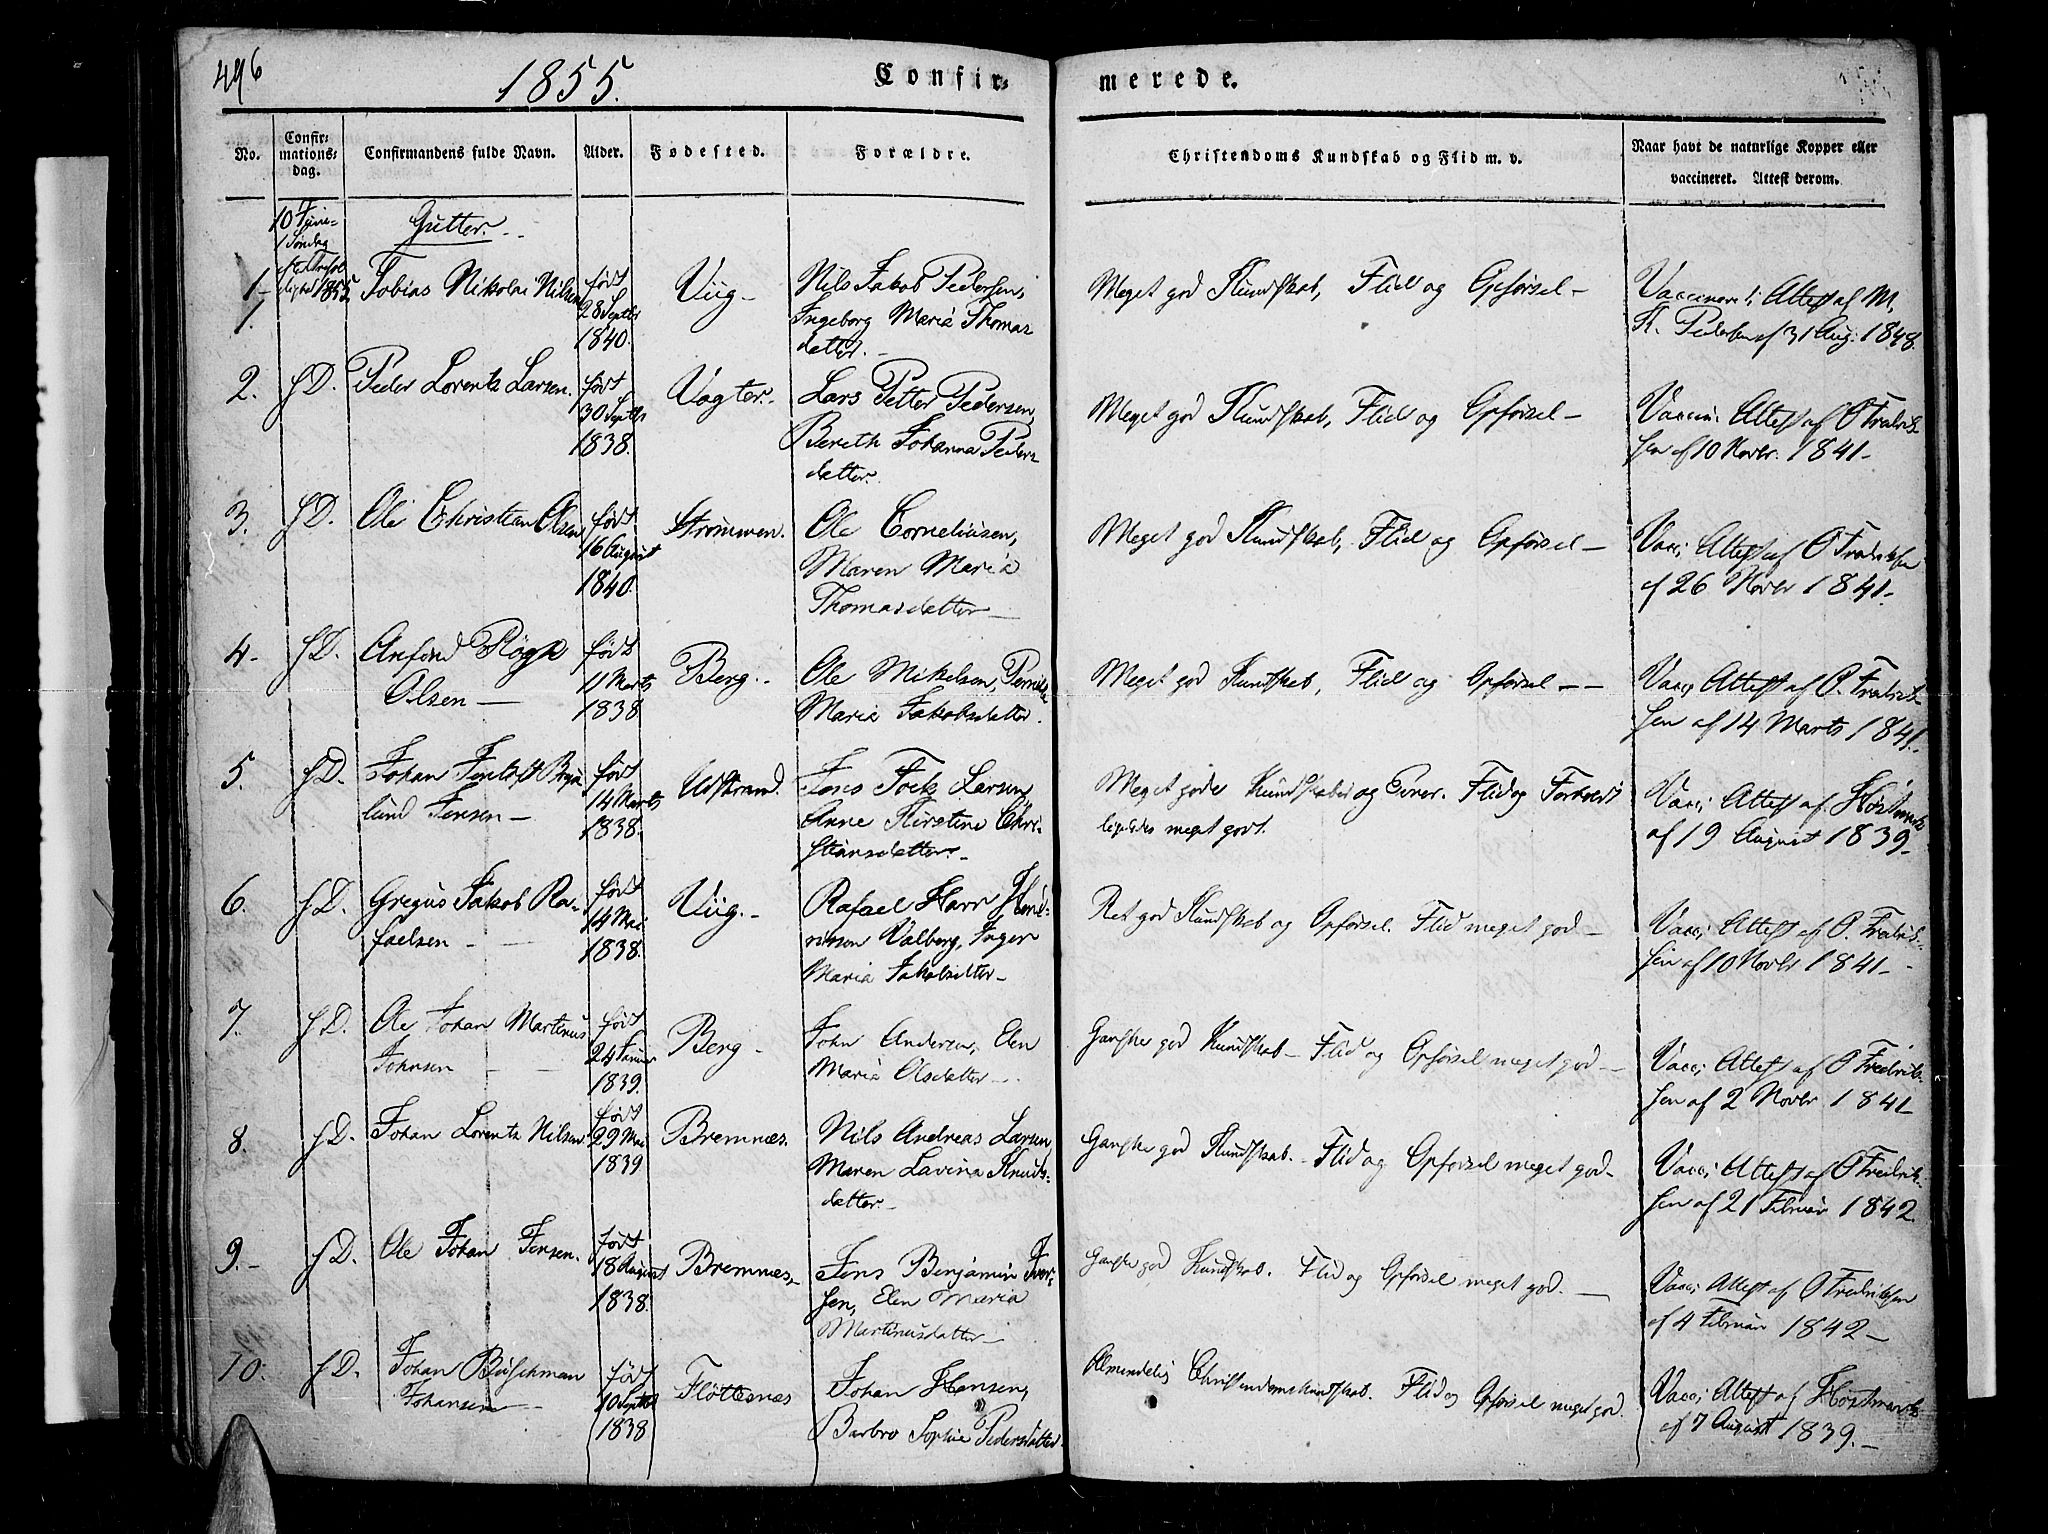 496
1855.
Confir=
merede.
No.
Confir=
mations=
dag.
Confirmandens fulde Navn.
Alder.
Fødested.
Forældre.
Christendoms Kundskab og Flid m. v.
Naar havt de naturlige Kopper eller
vaccineret. Attest derom.
10 Juni
1 Søndag
1855
Gutter.
1.
Tobias Nikolai Nilsen
født
28 Septbr
1840.
Viig
Nils Jakob Pedersen,
Ingeborg Maria Thomas
datter.
Meget god Kundskab, Flid og Opførsel
Vaccineret; Attest af M.
K. Pedersen af 31 Aug: 1848.
2.
s. D.
Peder Lorentz Larsen.
født
30 Septbr
1838.
Vagter.
Lars Petter Pedersen,
Bereth Johanna Peders=
datter.
Meget god Kundskab, Flid og Opførsel
Vacci: Attest af O Fredrik=
sen af 10 Novbr. 1841
3.
s. D.
Ole Christian Olsen
født
16 August
1840.
Strømmen.
Ole Corneliusen,
Maren Maria
Thomasdatter
Meget god Kundskab, Flid og Opførsel
Vacc; Attest af O Fredriksen
af 26 Novbr 1841.
4
s. D.
Olsen
født
11 Marts
1838
Berg.
Ole Mikelsen, Pernille
Maria Jakobsdatter.
Meget god Kundskab, Flid og Opførsel
Vacc; Attest af O. Fredrik=
sen af 14 Marts 1841.
5.
s. D.
Johan
lund Jensen
født
14 Marts
1838.
Udstrand.
Jens Fock Larsen,
Anne Kirstine Chri=
stiansdatter.
Meget gode Kundskaber og Evner. Flid og Forhold
meget godt.
Vacc; Attest af Hostmark
af 19 August 1839
6.
s. D.
Gregus Jakob Ra=
faelsen
født
14 Mai
1838.
Viig.
Rafael Harr Hen=
riksen Valberg, Inger
Maria Jakobsdtter
Ret god Kundskab og Opførsel. Flid meget god
Vacc; Attest af O. Fredrik=
sen af 10 Novbr 1841
7.
s. D.
Ole Johan Martinus
Johnsen
født
24 Januar
1839.
Berg
John Andersen, Elen
Maria Olsdatter
Ganske god Kundskab Flid og Opførsel meget god
Vacc; Attest af O Fredrik=
sen af 2 Novbr 1841
8.
s. D.
Johan Lorentz Nilsen
født
29 Mai
1839
Bremnæs.
Nils Andreas Larsen,
Maren Lavina Knuds=
datter.
Ganske god Kundskab. Flid og Opførsel meget god
Vacc; Attest af O Fredrik=
sen af 21 Februar 1842.
9.
s. D.
Ole Johan Jensen.
født
18 August
1838.
Bremnæs
Jens Benjamin Iver=
sen, Elen Maria
Martinusdatter
Ganske god Kundskab. Flid og Opførsel meget god.
Vacc; Attest af O Fredriksen
af 4 Februar 1842
10.
s. D.
Johan Buschman
Johansen
født
10 Septbr
1838
Fløttenæs
Johan Hansen,
Barbro Sophie Pedersdatter
Almindelig Christendomskundskab. Flid og Opførsel meget god.
Vacc; Attest af Hostmark
af 7 August 1839.